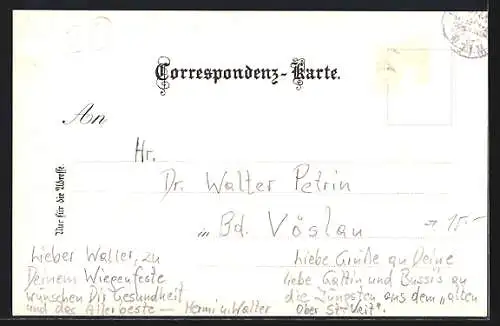 Correspondenz-Karte.
An
Hr.
Dr. Walter Petrin
in Bd. Vöslau
→ 15.-
Nur für die Adresse.
Lieber Walter, zu
Deinem Wiegenfeste
wünschen Dir Gesundheit
und das Allerbeste — Hermi u. Walter
Liebe Grüße an Deine
liebe Gattin und Bussis an
die Jüngsten aus dem „alten
Ober St. Veit".